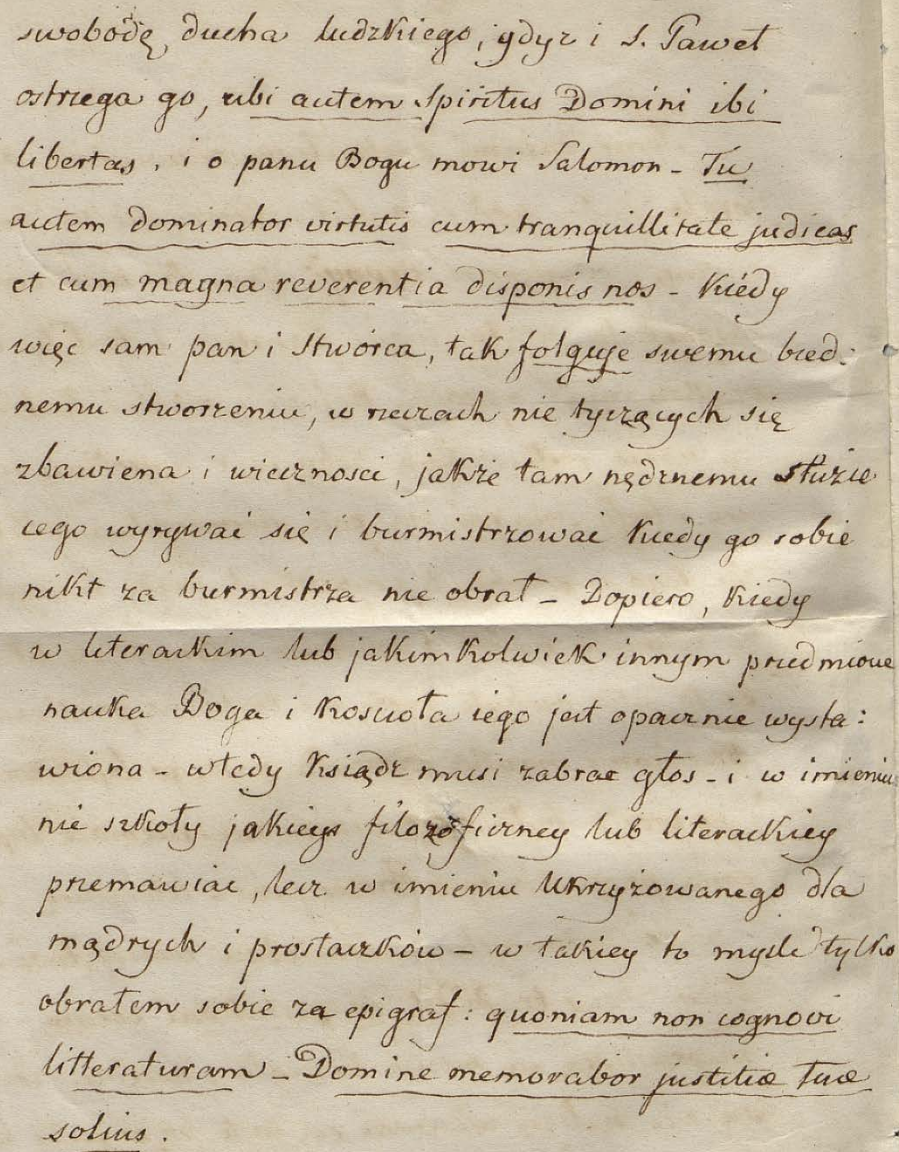 swobodę ducha ludzkiego, gdyz i S. Paweł
ostrzega go, ubi autem Spiritus Domini ibi
libertas, i o panu Bogu mowi Salomon - Tu
autem dominator virtutis cum tranquillitate judicas
et cum magna reverentia disponis nos - Kiedy
więc sam pan i Stwórca, tak folguje swemu bied:
nemu stworzeniu, w rzeczach nie tyczących się
zbawiena i wieczności, jakże tam nędznemu słudze
iego wyrywać się i burmistrzować kiedy go sobie
nikt za burmistrza nie obrał - Dopiero, kiedy
w literackim lub jakimkolwiek innym przedmiocie
nauka Boga i Kościoła iego jest opacznie wysta:
wiona - wtedy Ksiądz musi zabrac głos - i w imieniu
nie szkoły jakieys filozoficzney lub literackiey
przemawiac, lecz w imieniu Ukrzyżowanego dla
mądrych i prostaczków - w takiey to mysli tylko
obrałem sobie za epigraf: quoniam non cognovi
litteraturam - Domine memorabor justitiæ tuæ
solius.